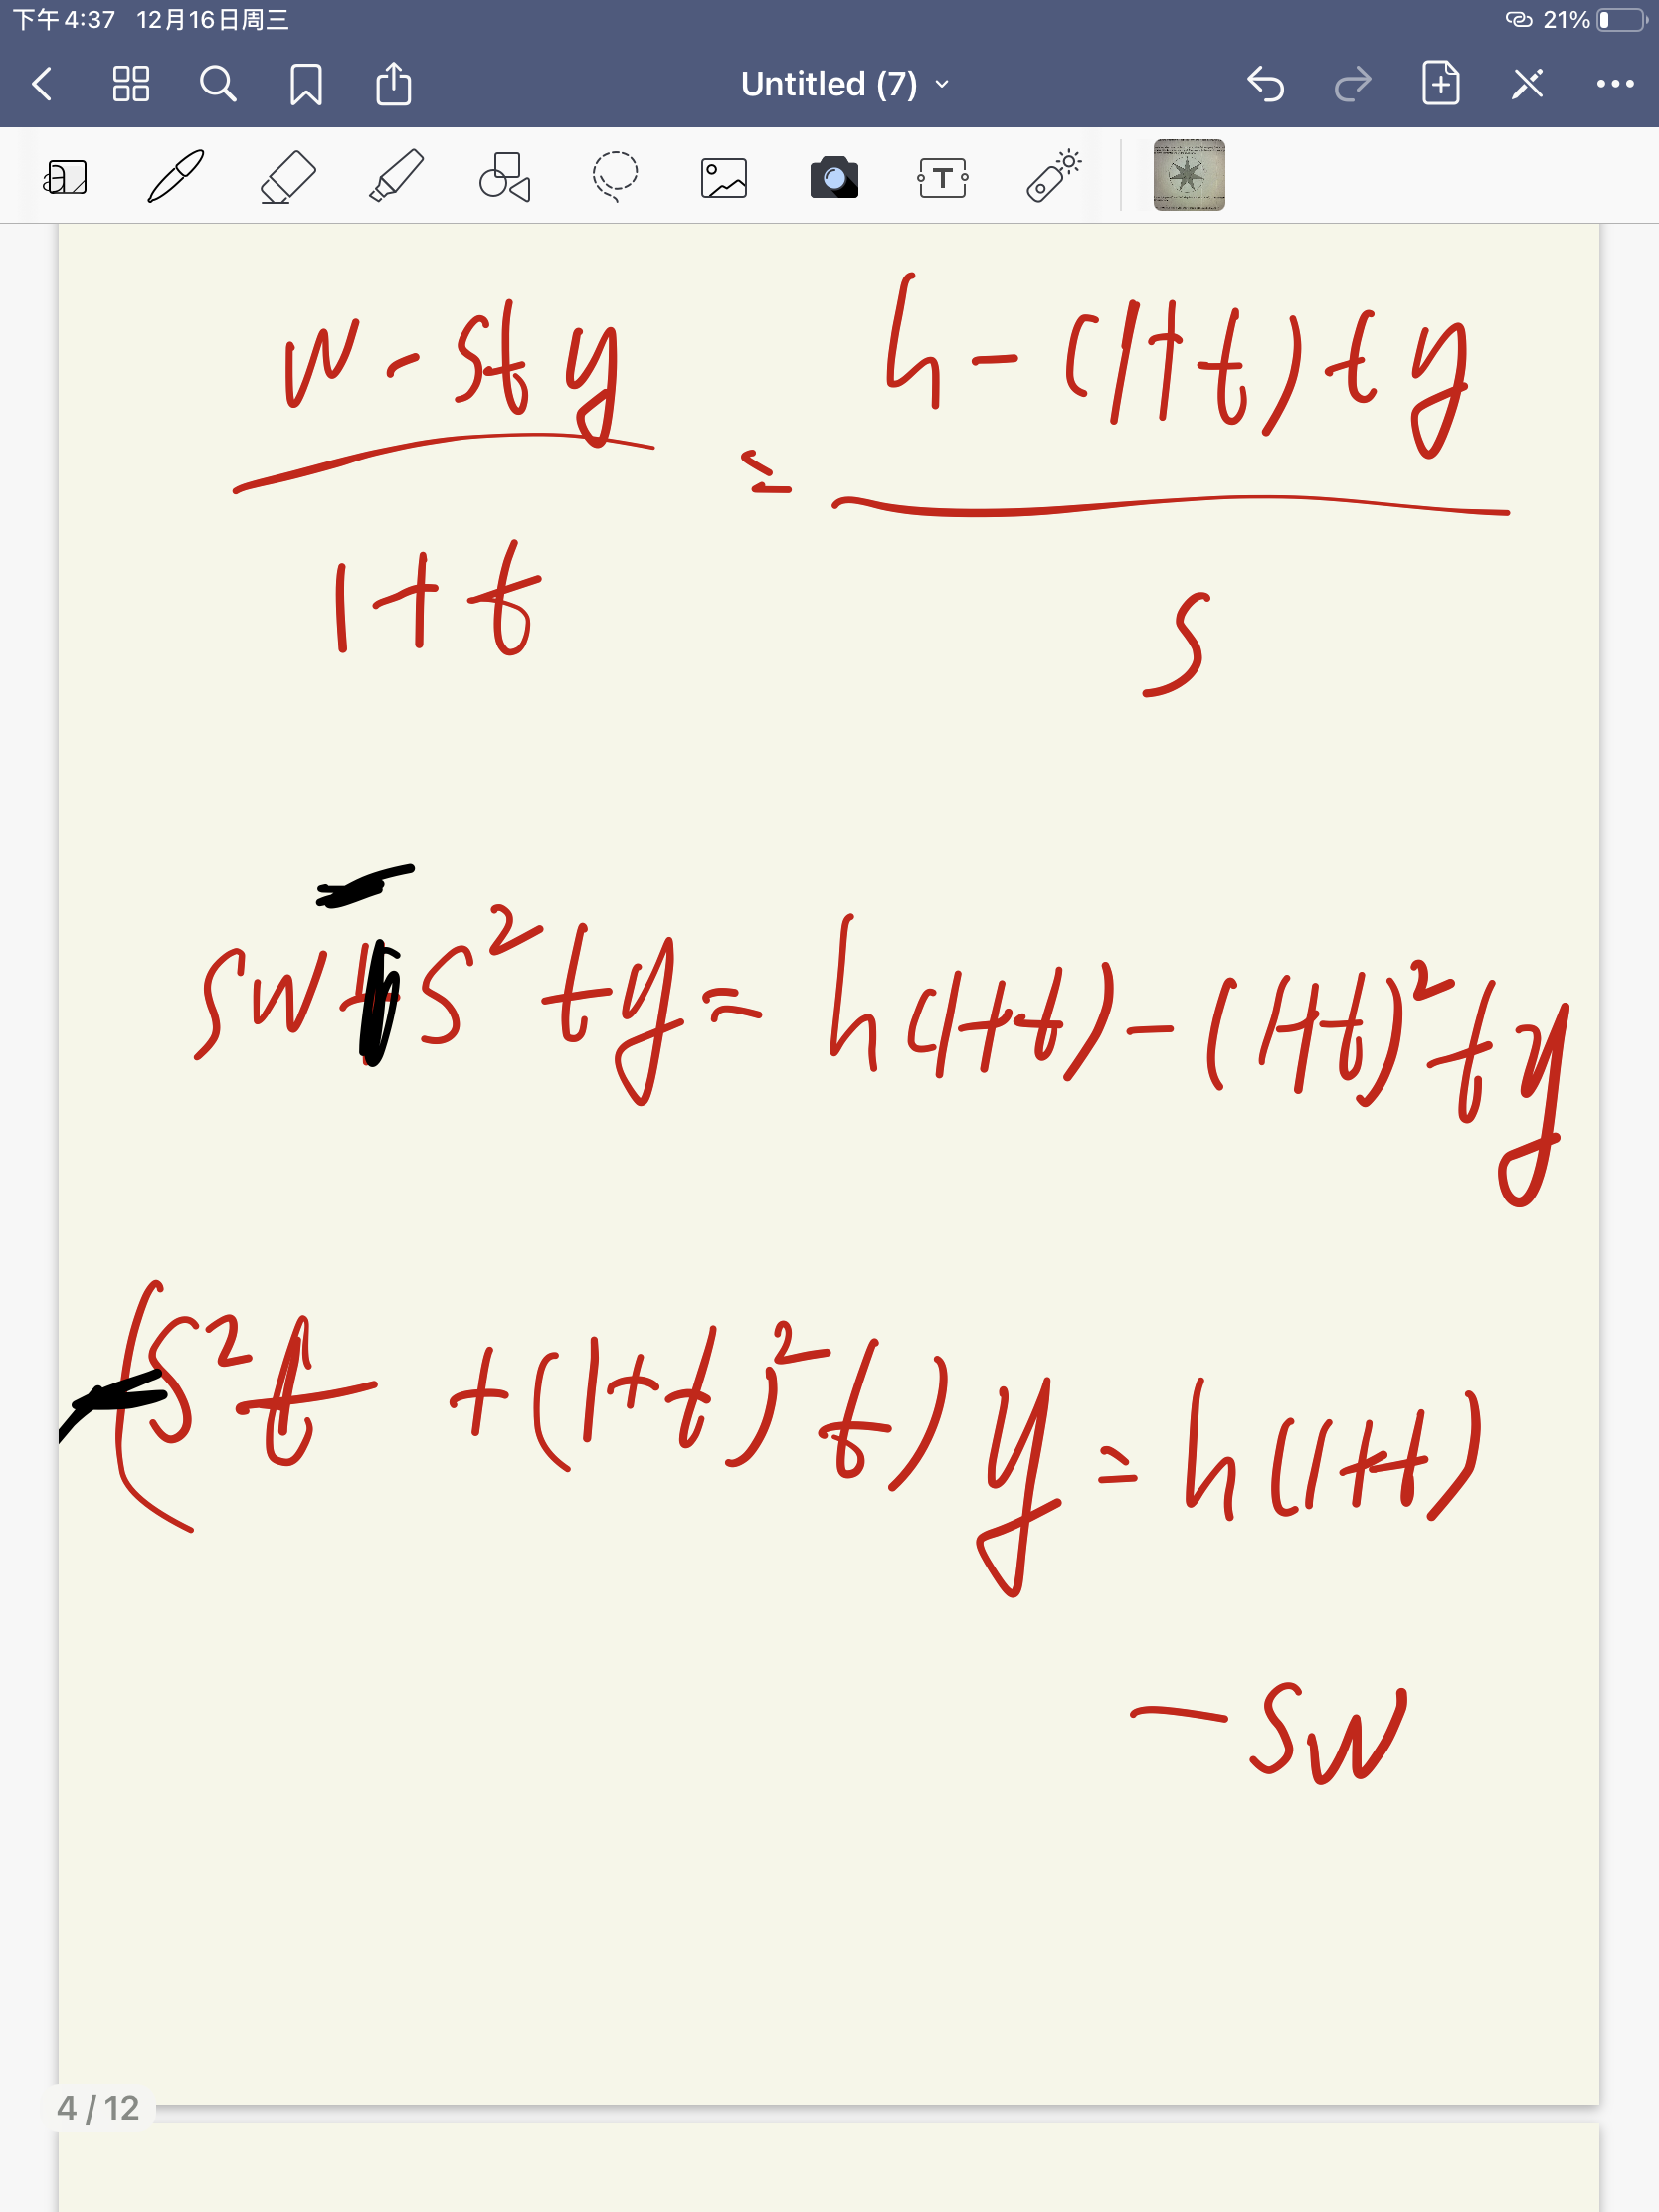 下午4:37 12月16日周三 21%
Untitled (7)
T
w - sty = h - (1+t)ty
1+t s
sw s²ty = h(1+t) - (1+t)²ty
(s²t + (1+t)²t) y = h(1+t)
- sw
4 / 12